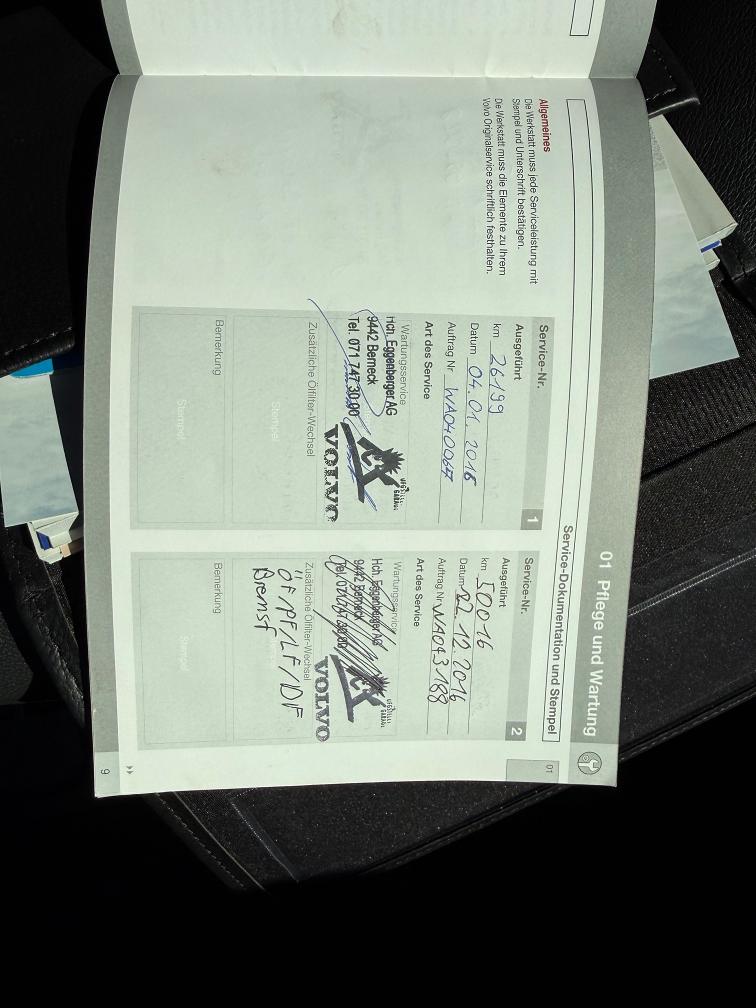 01 Pflege und Wartung
Service-Dokumentation und Stempel
01
Allgemeines
Die Werkstatt muss jede Serviceleistung mit
Stempel und Unterschrift bestätigen.
Die Werkstatt muss die Elemente zu Ihrem
Volvo Originalservice schriftlich festhalten.
Service-Nr.
1
Ausgeführt
km 26199
Datum 04.01.2016
Auftrag Nr WA040067
Art des Service
Wartungsservice
Hch. Eggenberger AG
9442 Berneck
Tel. 071 747 30 00
VOLVO
Zusätzliche Ölfilter-Wechsel
Stempel
Bemerkung
Stempel
Service-Nr.
2
Ausgeführt
km 50016
Datum 22.12.2016
Auftrag Nr WA043188
Art des Service
Wartungsservice
Hch. Eggenberger AG
9442 Berneck
VOLVO
Zusätzliche Ölfilter-Wechsel
ÖF/PF/LF/DF
Bremsf
Bemerkung
Stempel
9